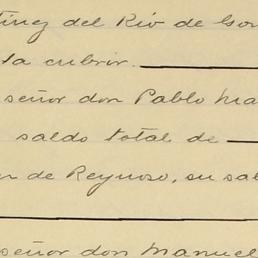 tinez del Río de Gon
ta cubrir.
señor don Pablo Ma
saldo total de
de Reynoso, su sal
señor don Manuel